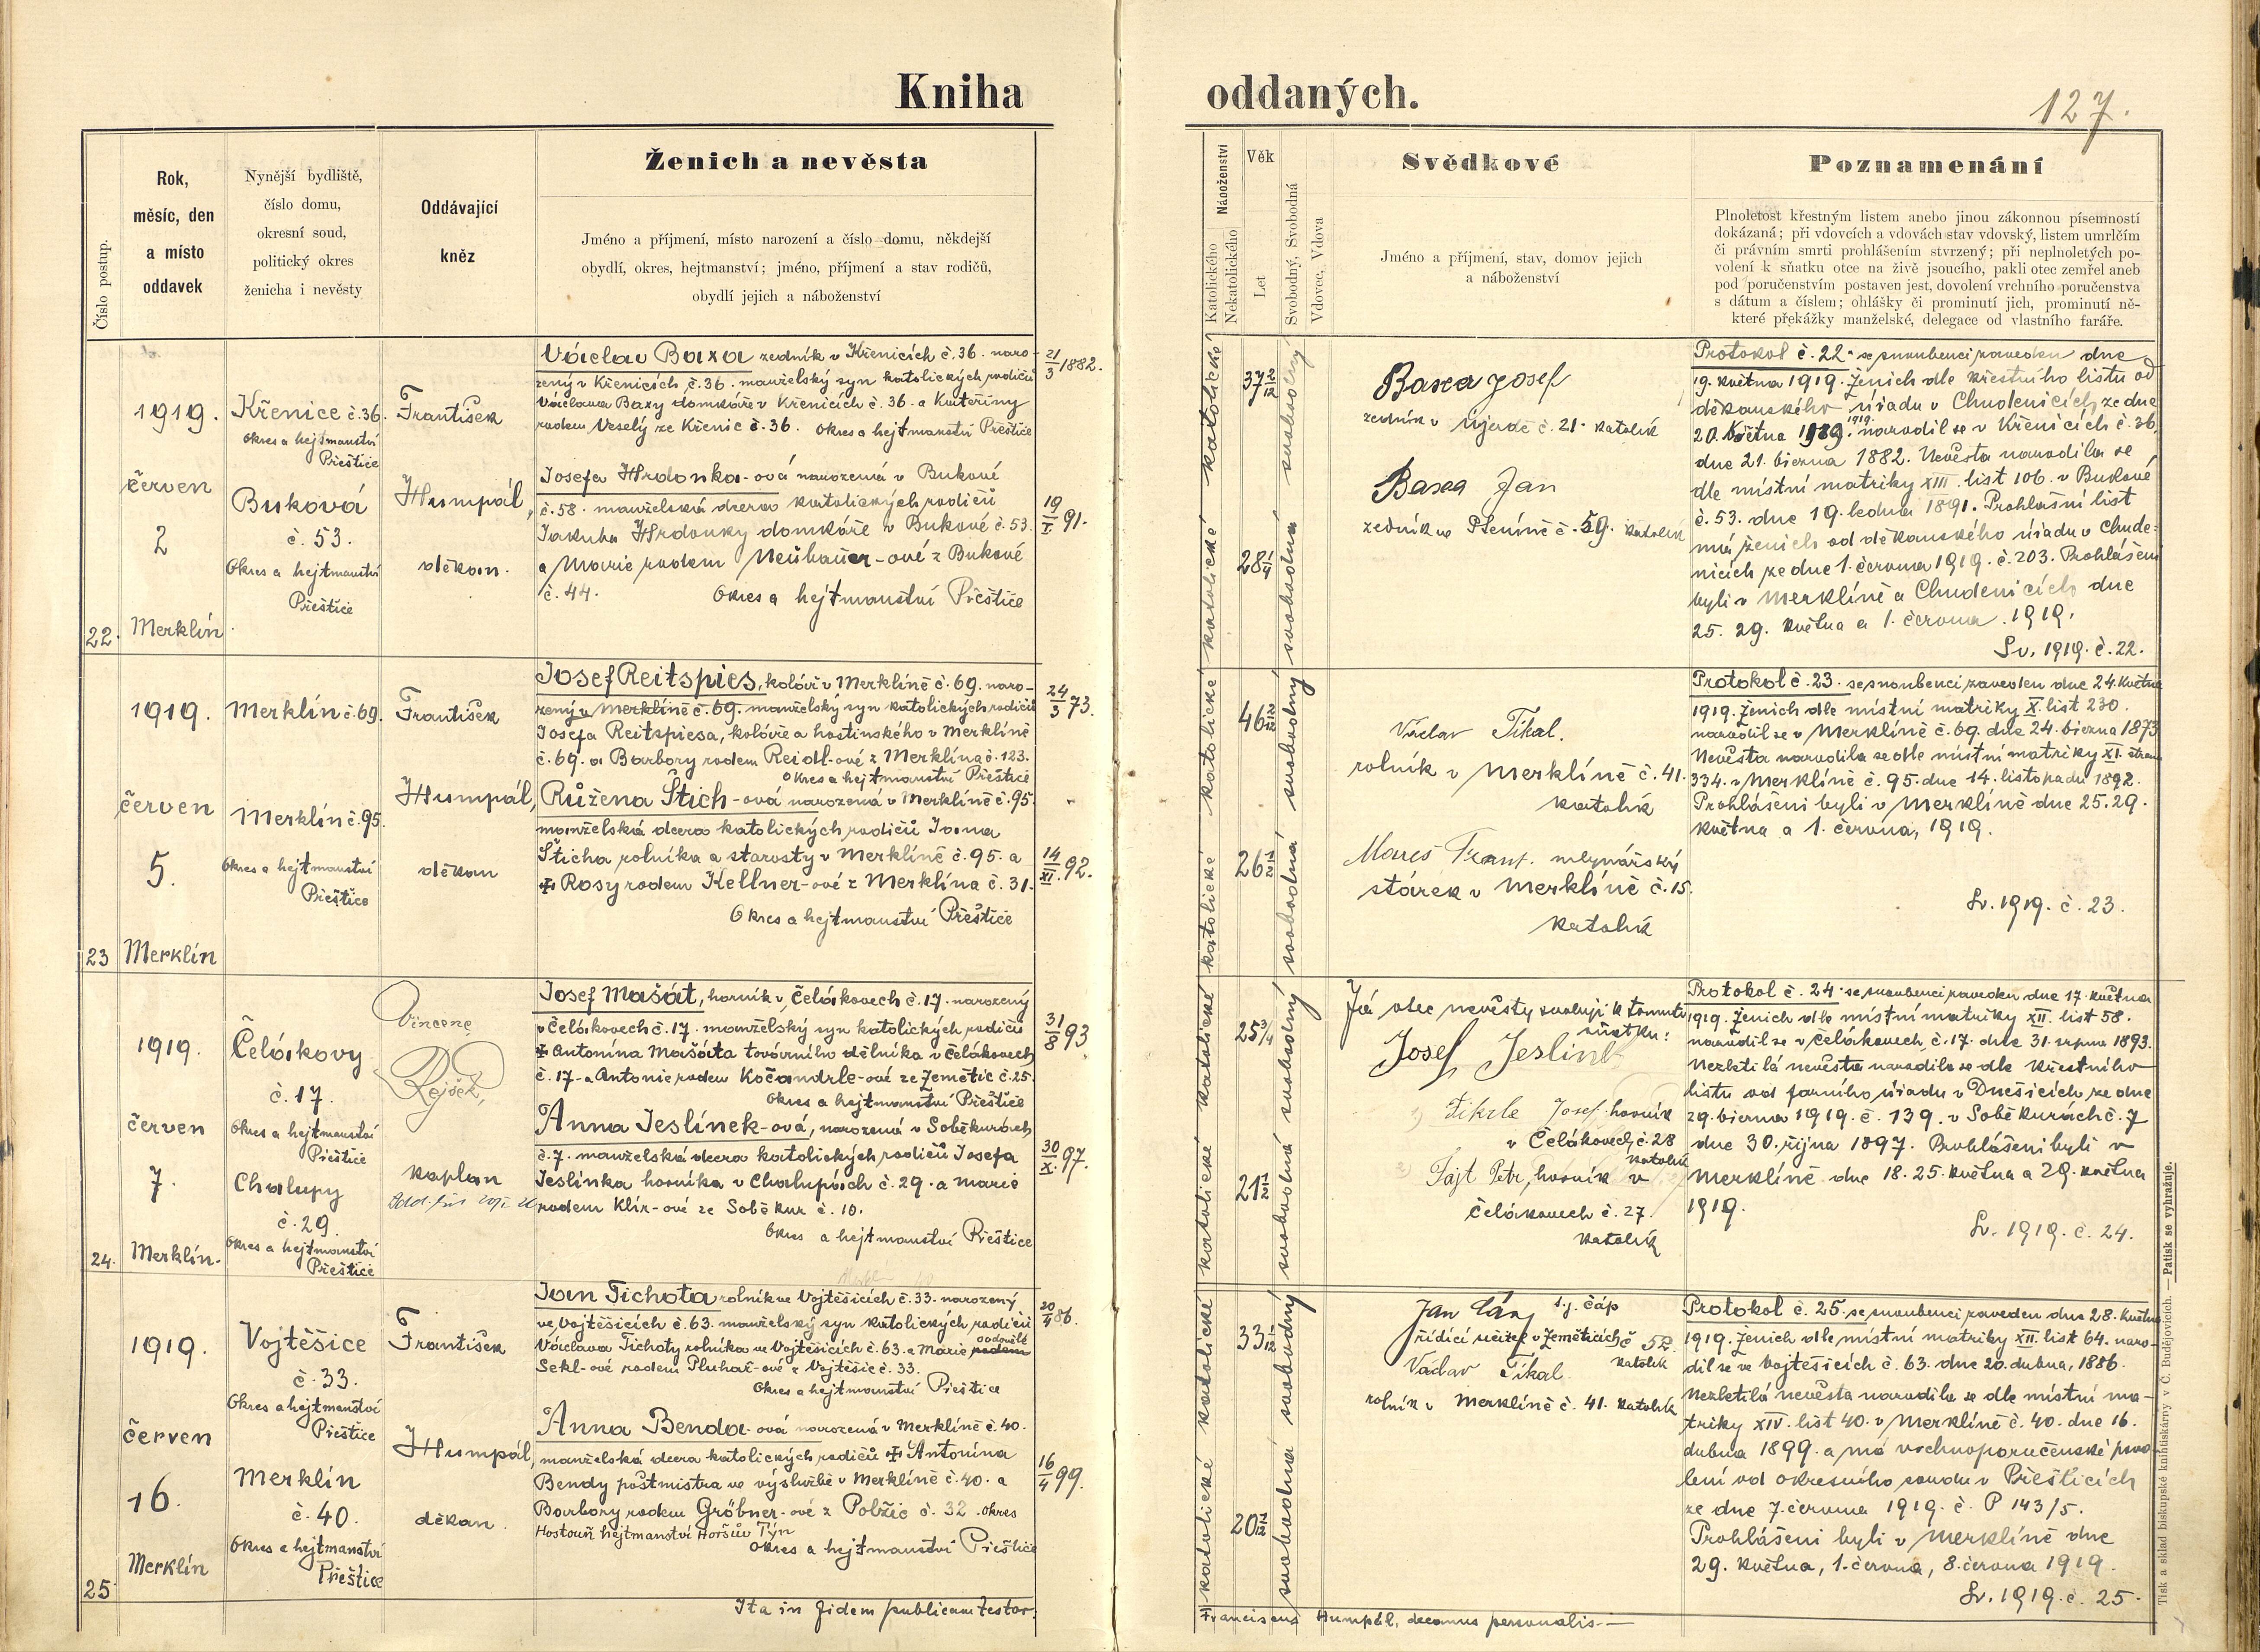 Kniha
oddaných.
127.
Číslo postup.
Rok,
měsíc, den
a místo
oddavek
Nynější bydliště,
číslo domu,
okresní soud,
politický okres
ženicha i nevěsty
Oddávající
kněz
Ženich a nevěsta
Jméno a příjmení, místo narození a číslo domu, někdejší
obydlí, okres, hejtmanství; jméno, příjmení a stav rodičů,
obydlí jejich a náboženství
Náboženství
Katolického
Nekatolického
Věk
Let
Svobodný, Svobodná
Vdovec, Vdova
Svědkové
Jméno a příjmení, stav, domov jejich
a náboženství
Poznamenání
Plnoletost křestným listem anebo jinou zákonnou písemností
dokázaná; při vdovcích a vdovách stav vdovský, listem umrlčím
či právním smrti prohlášením stvrzený; při neplnoletých po-
volení k sňatku otce na živě jsoucího, pakli otec zemřel aneb
pod poručenstvím postaven jest, dovolení vrchního poručenstva
s dátum a číslem; ohlášky či prominutí jich, prominutí ně-
které překážky manželské, delegace od vlastního faráře.
22.
1919.
červen
2
Merklín
Křenice č. 36.
Okres a hejtmanství
Přeštice
Buková
č. 53.
Okres a hejtmanství
Přeštice
František
Humpál,
děkan.
Václav Baxa zedník v Křenicích č. 36. naro-
zený v Křenicích č. 36. manželský syn katolických rodičů
Václava Baxy domkáře v Křenicích č. 36. a Kateřiny
rodem Veselý ze Křenic č. 36. Okres a hejtmanství Přeštice
21/3 1882.
Josefa Hrdonka-ová narozená v Bukové
č. 58. manželská dcera katolických rodičů
Jakuba Hrdonky domkáře v Bukové č. 53.
a Marie rodem Neühauer-ové z Bukové
č. 44. Okres a hejtmanství Přeštice
19/I 91.
katolické
katolické
37 2/12
28 1/4
svobodný
svobodná
Baxa Josef
zedník v Újezdě č. 21. katolík
Baxa Jan
zedník ve Pteníně č. 59. katolík
Protokol č. 22. se snoubenci zaveden dne
19. května 1919. Ženich dle křestního listu od
děkanského úřadu v Chudenicích ze dne
20. května 1919. narodil se v Křenicích č. 36.
dne 21. března 1882. Nevěsta narodila se
dle místní matriky XIII. list 106. v Bukové
č. 53. dne 19. ledna 1891. Prohlašní list
má ženich od děkanského úřadu v Chude-
nicích ze dne 1. června 1919. č. 203. Prohlášeni
byli v Merklíně a Chudenicích dne
25. 29. května a 1. června. 1919.
Sv. 1919. č. 22.
23
1919.
červen
5.
Merklín
Merklín č. 69.
Merklín č. 95.
Okres a hejtmanství
Přeštice
František
Humpál,
děkan
Josef Reitspies, kolář v Merklíně č. 69. naro-
zený v Merklíně č. 69. manželský syn katolických rodičů
Josefa Reitspiesa, koláře a hostinského v Merklíně
č. 69. a Barbory rodem Reidl-ové z Merklína č. 123.
Okres a hejtmanství Přeštice
24/3 73.
Růžena Štich-ová narozená v Merklíně č. 95.
manželská dcera katolických rodičů Jana
Šticha rolníka a starosty v Merklíně č. 95. a
✠ Rosy rodem Kellner-ové z Merklína č. 31.
Okres a hejtmanství Přeštice
14/XI. 92.
katolické
katolické
46 2/12
26
svobodný
svobodná
Václav Tikal.
rolník v Merklíně č. 41.
katolík
Mareš Frant. mlynářský
stárek v Merklíně č. 15.
katolík
Protokol č. 23. se snoubenci zaveden dne 24. května
1919. Ženich dle místní matriky X. list 230.
narodil se v Merklíně č. 69. dne 24. března 1873
Nevěsta narodila se dle místní matriky XI. strana
334. v Merklíně č. 95. dne 14. listopadu 1892.
Prohlášeni byli v Merklíně dne 25. 29.
května a 1. června, 1919.
Sv. 1919. č. 23.
24.
1919.
červen
7.
Merklín.
Čelákovy
č. 17.
Okres a hejtmanství
Přeštice
Chalupy
č. 29.
Okres a hejtmanství
Přeštice
Vincenc
Rejšek,
kaplan
Josef Mašát, horník v Čelákovech č. 17. narozený
v Čelákovech č. 17. manželský syn katolických rodičů
✠ Antonína Mašáta továrního dělníka v Čelákovech
č. 17. a Antonie rodem Kočandrle-ové ze Zemětic č. 25.
Okres a hejtmanství Přeštice
31/8 93
Anna Jeslínek-ová, narozená v Soběkurech
č. 7. manželská dcera katolických rodičů Josefa
Jeslínka horníka v Chalupách č. 29. a Marie
rodem Klír-ové ze Soběkur č. 10.
Okres a hejtmanství Přeštice
30/X. 97.
katolické
katolické
25 3/4
21
svobodný
svobodná
Já otec nevěsty svoluji k tomuto
sňatku:
Josef Jeslínek
Tikrle Josef horník
v Čelákovech č. 28
katolík
Fajt Petr, horník v
Čelákovech č. 27.
katolík
Protokol č. 24. se snoubenci zaveden dne 17. května
1919. Ženich dle místní matriky XII. list 58.
narodil se v Čelákovech č. 17. dne 31. srpna 1893.
Nezletilá nevěsta narodila se dle křestního
listu od farního úřadu v Dnešicích ze dne
29. března 1919. č. 139. v Soběkurách č. 7
dne 30. října 1897. Prohlášeni byli v
Merklíně dne 18. 25. května a 29. května
1919.
Sv. 1919. č. 24.
25
1919.
červen
16.
Merklín
Vojtěšice
č. 33.
Okres a hejtmanství
Přeštice
Merklín
č. 40.
Okres a hejtmanství
Přeštice
František
Humpál,
děkan.
Jan Tichota rolník ve Vojtěšicích č. 33. narozený
ve Vojtěšicích č. 63. manželský syn katolických rodičů
Václava Tichoty rolníka ve Vojtěšicích č. 63. a Marie rodem ovdovělé
Sekl-ové rodem Pluhař-ové z Vojtěšic č. 33.
Okres a hejtmanství Přeštice
20/4 86.
Anna Benda-ová narozená v Merklíně č. 40.
manželská dcera katolických rodičů ✠ Antonína
Bendy poštmistra ve výslužbě v Merklíně č. 40. a
Barbory rodem Gröbner-ové z Polžic č. 32. okres
Hostouň hejtmanství Horšův Týn
Okres a hejtmanství Přeštice
16/4 99.
katolické
katolické
33 2/12
20 2/12
svobodný
svobodná
Jan Čáp t. j. Čáp
řídící učitel v Zeměticích č. 52.
katolík
Václav Tikal.
rolník v Merklíně č. 41. katolík
Protokol č. 25. se snoubenci zaveden dne 28. května
1919. Ženich dle místní matriky XII. list 64. naro-
dil se ve Vojtěšicích č. 63. dne 20. dubna, 1886.
Nezletilá nevěsta narodila se dle místní ma-
triky XIV. list 40. v Merklíně č. 40. dne 16.
dubna 1899. a má vrchnoporučenské povo-
lení od okresního soudu v Přešticích
ze dne 7. června 1919. č. P 143/5.
Prohlášeni byli v Merklíně dne
29. května, 1. června, 8. června 1919.
Sv. 1919. č. 25.
Ita in fidem publicam testor:
Franciscus Humpál, decanus personalis
Tisk a sklad biskupské knihtiskárny v Č. Budějovicích. — Patisk se vyhražuje.